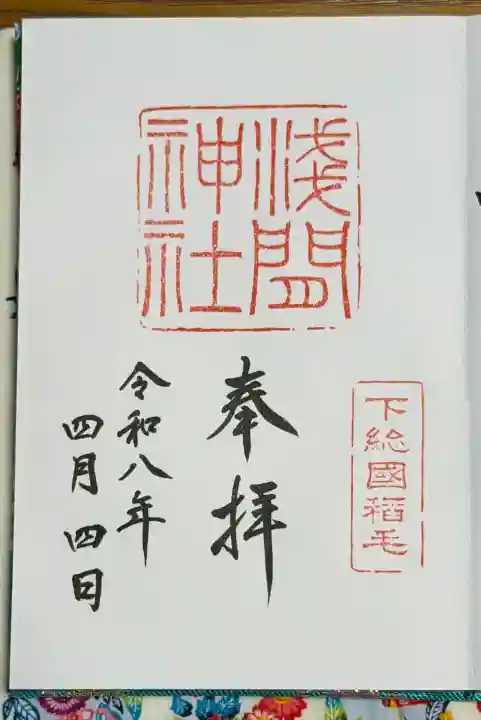 淺間
神社
下総國稲毛
奉拝
令和八年
四月四日